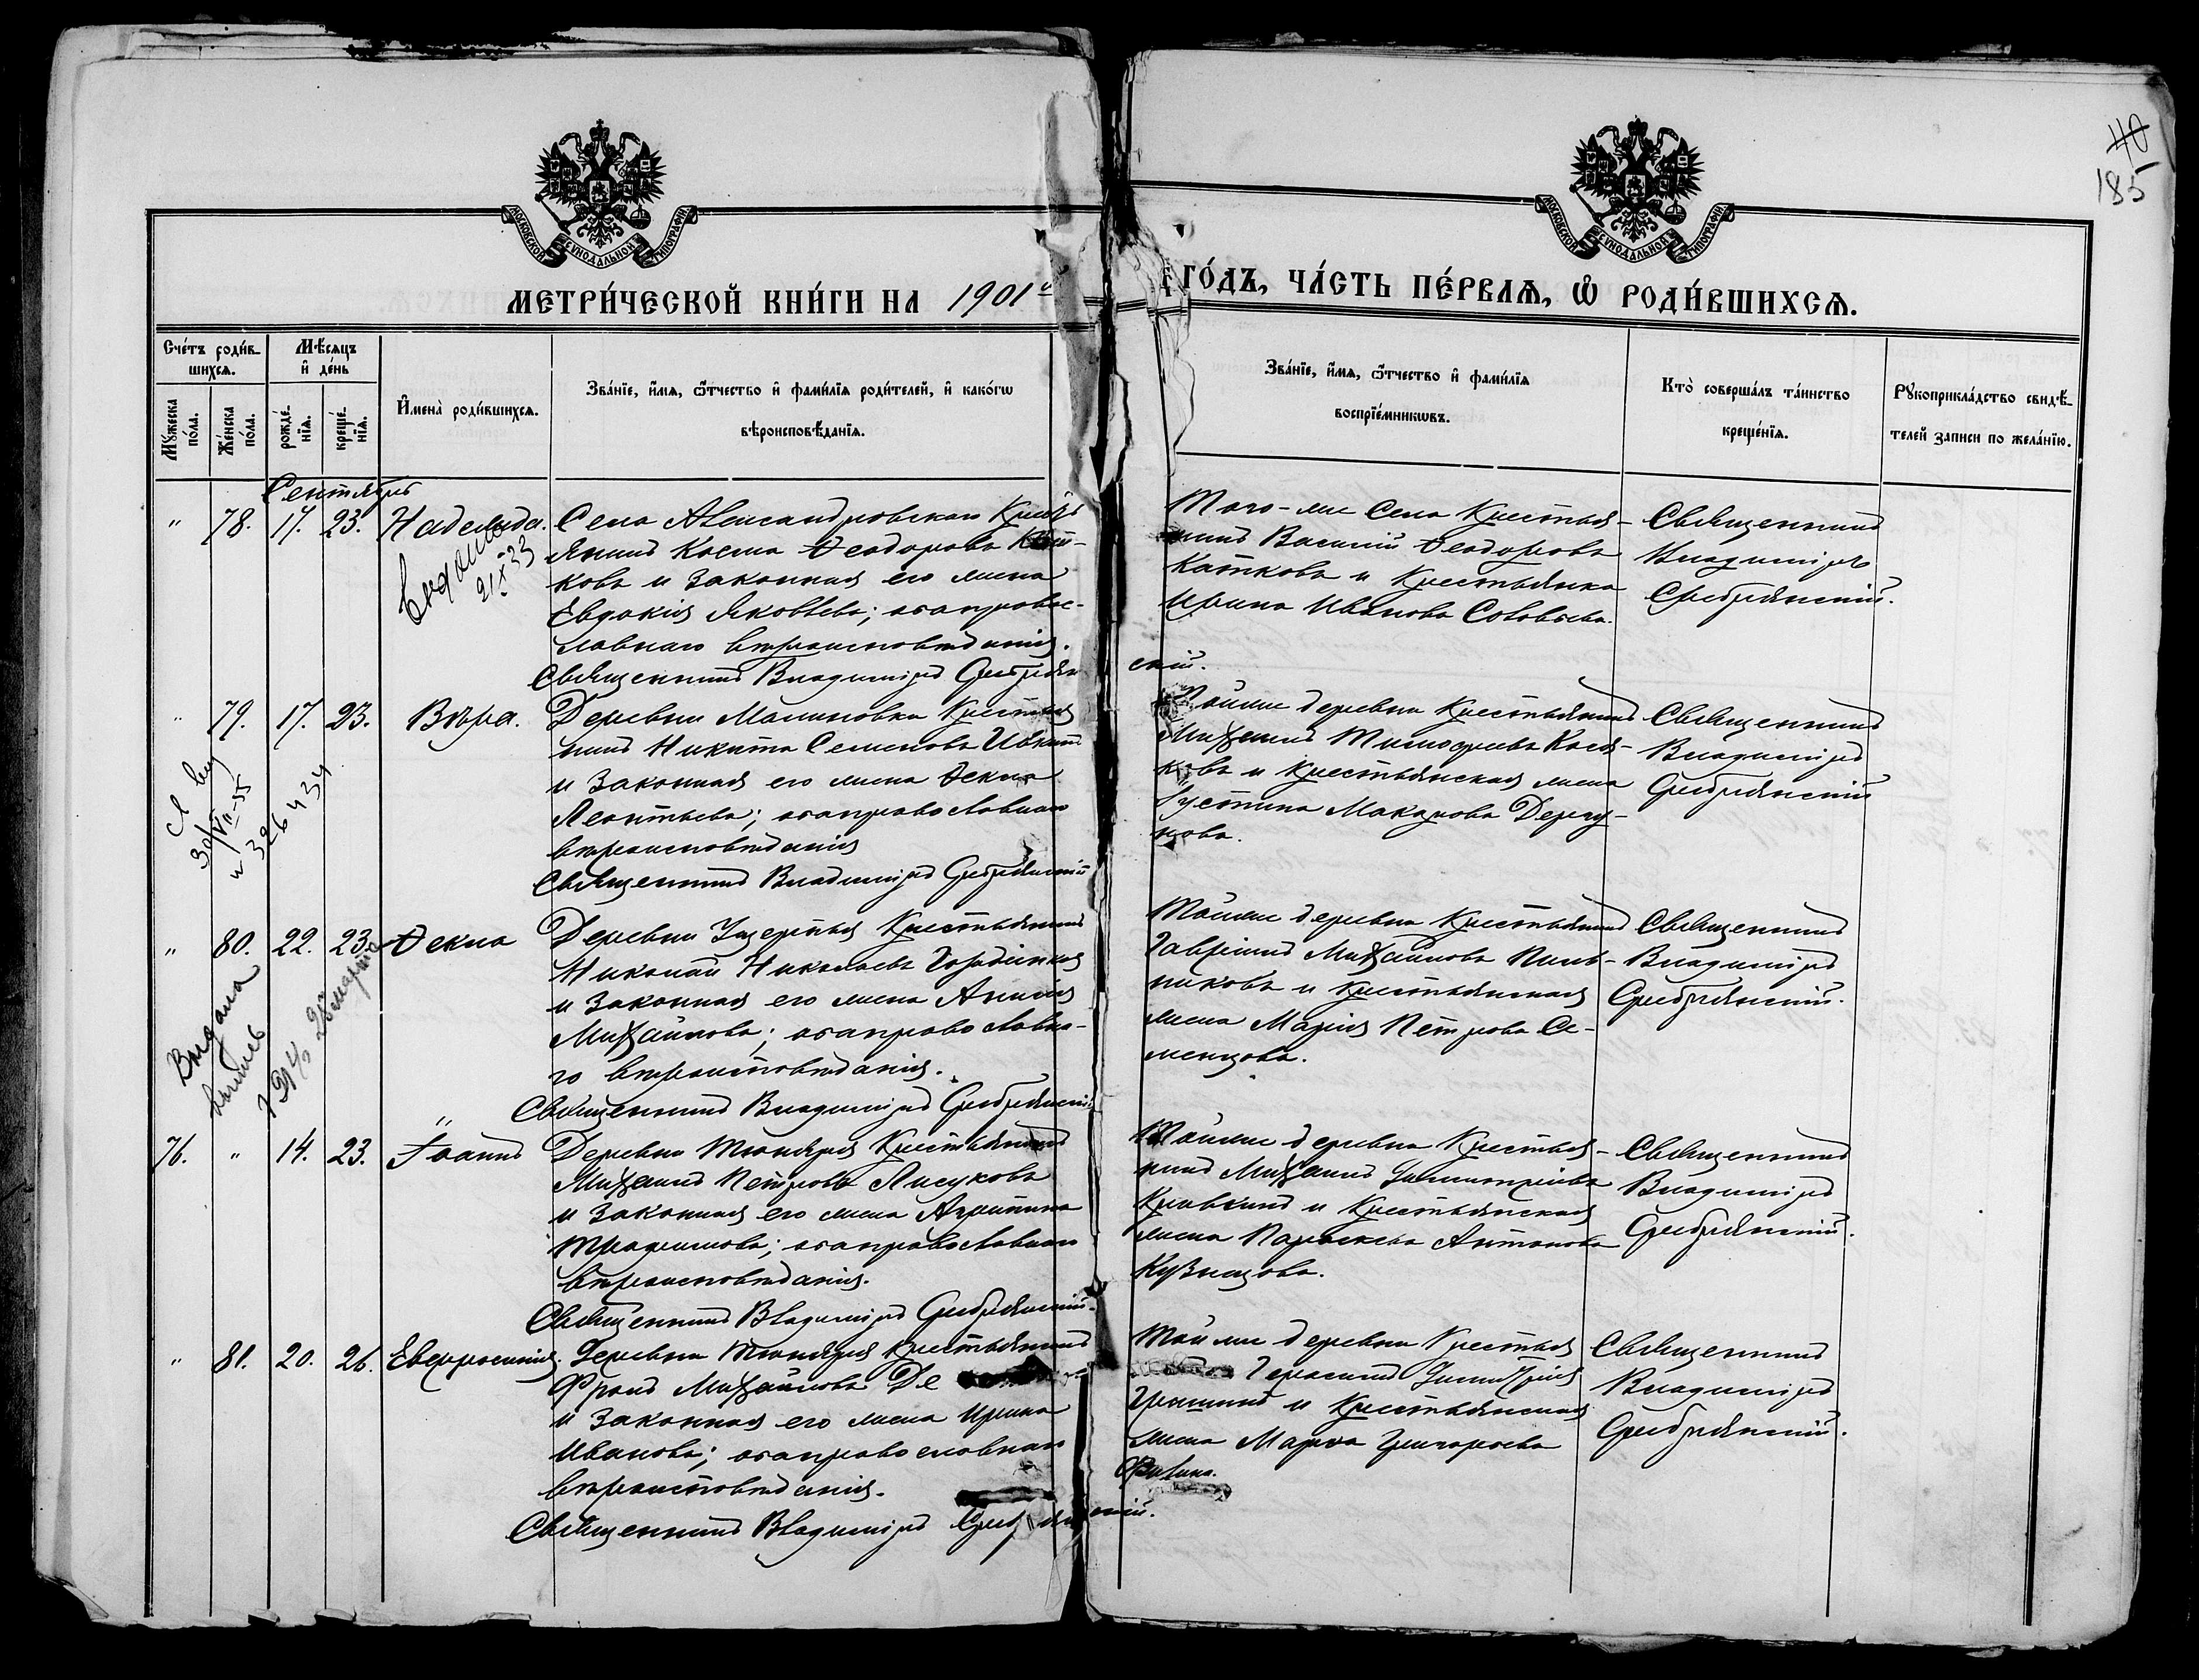 40
185
МОСКОВСКОЙ СѴНОДАЛЬНОЙ ТИПОГРАФІИ
МОСКОВСКОЙ СѴНОДАЛЬНОЙ ТИПОГРАФІИ
МЕТРИ́ЧЕСКОЙ КНИ́ГИ НА 1901й
ГО́ДЪ, ЧА́СТЬ ПЕ́РВАѦ, Ѽ РОДИ́ВШИХСѦ.
Сче́тъ роди́в-
шихсѧ.
Мѣ́сѧцъ
и҆ де́нь
Мꙋ́жеска
по́ла.
Же́нска
по́ла.
рожде́-
нїѧ.
креще́-
нїѧ.
И҆мена̀ роди́вшихсѧ.
Зва́нїе, и҆́мѧ, ѻ҆́тчество и҆ фами́лїѧ роди́телей, и҆ како́гѡ
вѣроисповѣ́данїѧ.
Зва́нїе, и҆́мѧ, ѻ҆́тчество и҆ фами́лїѧ
воспрїе́мникѡвъ.
Кто̀ соверша́лъ та́инство
креще́нїѧ.
Рꙋкоприкла́дство свидѣ́-
телей записи по жела́нїю.
Сентябрь
" 78. 17. 23. Надежда.
Села Александровскаго Кресть
янинъ Косма Ѳеодоровъ Кат-
ковъ и законная его жена
Евдокія Яковлева; оба правос-
лавнаго вѣроисповѣданія.
Священникъ Владиміръ Сребрян
скій.
Того-же Села Крестья-
нинъ Василій Ѳеодоровъ
Катковъ и Крестьянка
Ирина Иванова Соловьева.
Священникъ
Владиміръ
Сребрянскій.
21 X 33
" 79. 17. 23. Вѣра.
Деревни Малиновки Крестья
нинъ Никита Семеновъ
и законная его жена Ѳекла
Леонтьева; оба православнаго
вѣроисповѣданія
Священникъ Владиміръ Сребрянскій
Той же деревни Крестьянинъ
Михаилъ Тимофеевъ
ковъ и крестьянская жена
Іустина Макарова Дергу-
нова.
Священникъ
Владиміръ
Сребрянскій
326434
" 80. 22. 23. Ѳекла
Деревни Крестьянинъ
Николай Николаевъ
и законная его жена Анисія
Михайлова; оба православна-
го вѣроисповѣданія.
Священникъ Владиміръ Сребрянскій
Той же деревни Крестьянинъ
Гавріилъ Михайловъ Пиль-
никовъ и крестьянская
жена Марія Петрова Се-
менцова.
Священникъ
Владиміръ
Сребрянскій.
Выдана
76. " 14. 23. Іоаннъ
Деревни Тюняря Крестьянинъ
Михаилъ Петровъ Лисуковъ
и законная его жена Агрипина
Трофимова; оба православнаго
вѣроисповѣданія.
Священникъ Владиміръ Сребрянскій.
Той же деревни Крестья-
нинъ Михаилъ Димитріевъ
Кривкинъ и Крестьянская
жена Параскева Антонова
Кузнецова.
Священникъ
Владиміръ
Сребрянскій.
" 81. 20. 26. Евфросинія.
Деревни Тюняря Крестьянинъ
Фролъ Михайловъ Де
и законная его жена Ирина
Иванова; оба православнаго
вѣроисповѣданія.
Священникъ Владиміръ Сребрянскій.
Той же деревни Крестья
Герасимъ Димитріевъ
Гришинъ и Крестьянская
жена Марѳа Григорьева
Филина.
Священникъ
Владиміръ
Сребрянскій.